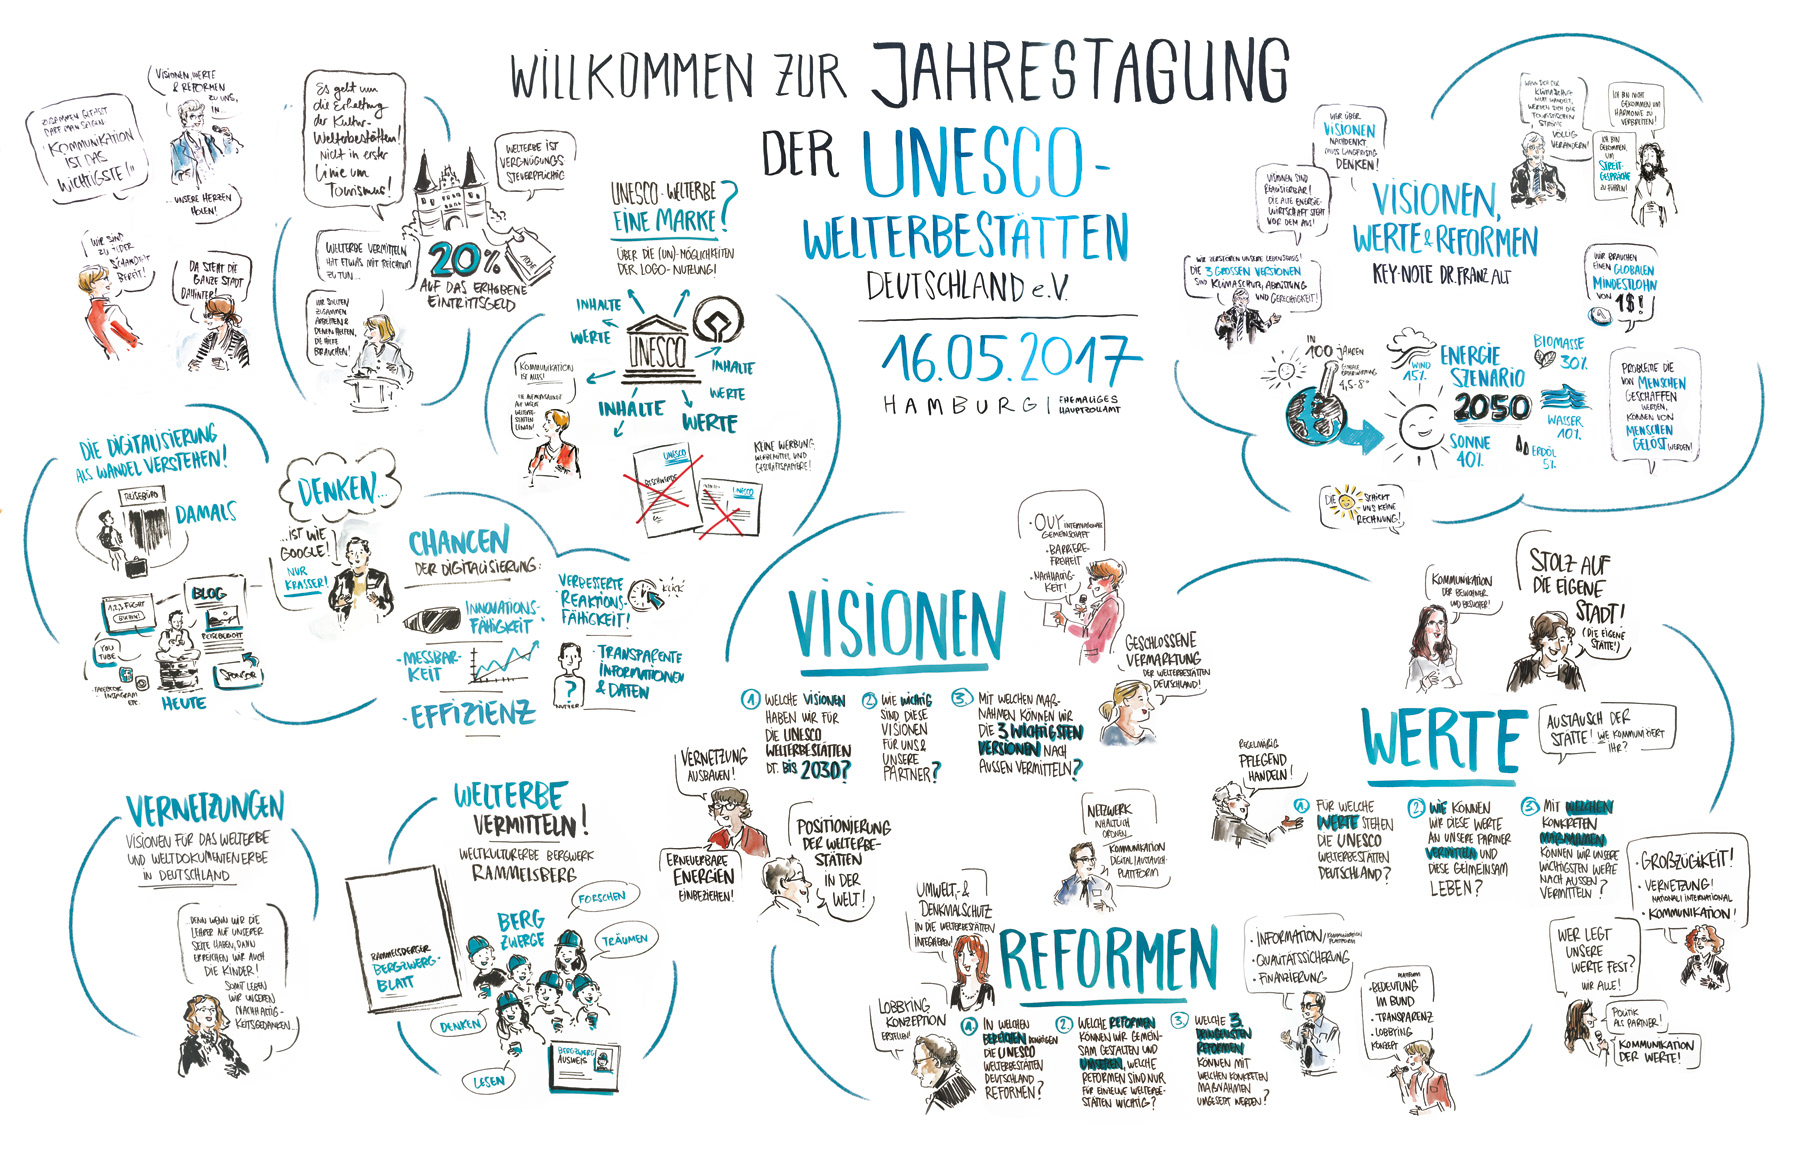 WILLKOMMEN ZUR JAHRESTAGUNG
DER UNESCO-
WELTERBESTÄTTEN
DEUTSCHLAND e.V.
16.05.2017
HAMBURG | EHEMALIGES
HAUPTZOLLAMT
VISIONEN, WERTE
& REFORMEN
ZU UNS,
IN...
...UNSERE HERZEN
HOLEN!
ZUSAMMEN GEFASST
DARF MAN SAGEN
"KOMMUNIKATION
IST DAS
WICHTIGSTE!"
WIR SIND
ZU JEDER
SCHANDTAT
BEREIT!
DA STEHT DIE
GANZE STADT
DAHINTER!
Es geht um
die Erhaltung
der Kultur-
Welterbestätten!
Nicht in erster
Linie um
Tourismus!
WELTERBE IST
VERGNÜGUNGS
STEUERPFLICHTIG
WELTERBE VERMITTELN
HAT ETWAS MIT REICHTUM
ZU TUN...
20%
AUF DAS ERHOBENE
EINTRITTSGELD
WIR SOLLTEN
ZUSAMMEN
ARBEITEN &
DENEN HELFEN,
DIE HILFE
BRAUCHEN!
UNESCO-WELTERBE
EINE MARKE?
ÜBER DIE (UN)-MÖGLICHKEITEN
DER LOGO-NUTZUNG!
INHALTE
WERTE
UNESCO
INHALTE
WERTE
INHALTE
WERTE
KOMMUNIKATION
IST ALLES!
UNESCO
UNESCO
KEINE WERBUNG,
WERBEMITTEL UND
GESCHÄFTSPAPIERE!
DIE DIGITALISIERUNG
ALS WANDEL VERSTEHEN!
REISEBÜRO
DAMALS
BLOG
REISEBERICHT
YOU
TUBE
FACEBOOK
INSTAGRAM
ETC
HEUTE
SPONSOR
DENKEN...
...IST WIE
GOOGLE!
NUR
KRASSER!
CHANCEN
DER DIGITALISIERUNG:
INNOVATIONS-
FÄHIGKEIT
·MESSBAR-
KEIT
·EFFIZIENZ
VERBESSERTE
REAKTIONS-
FÄHIGKEIT!
KLICK
·TRANSPARENTE
INFORMATIONEN
& DATEN
?
VERNETZUNGEN
VISIONEN FÜR DAS WELTERBE
UND WELTDOKUMENTENERBE
IN DEUTSCHLAND
...DENN WENN WIR DIE
LEHRER AUF UNSERER
SEITE HABEN, DANN
ERREICHEN WIR AUCH
DIE KINDER!
SOMIT LEBEN
WIR UNSEREN
NACHHALTIG-
KEITSGEDANKEN...
WELTERBE
VERMITTELN!
WELTKULTURERBE BERGWERK
RAMMELSBERG
RAMMELSBERGER
BERGZWERG-
BLATT
BERG
ZWERGE
FORSCHEN
TRÄUMEN
DENKEN
LESEN
BERGZWERG
AUSWEIS
VISIONEN
1 WELCHE VISIONEN
HABEN WIR FÜR
DIE UNESCO
WELTERBESTÄTTEN
DT. BIS 2030?
2. WIE WICHTIG
SIND DIESE
VISIONEN
FÜR UNS &
UNSERE
PARTNER?
3. MIT WELCHEN MAß-
NAHMEN KÖNNEN WIR
DIE 3 WICHTIGSTEN
VERSIONEN NACH
AUSSEN VERMITTELN?
·OUV INTERNATIONALE
GEMEINSCHAFT
·BARRIERE-
FREIHEIT
·NACHHALTIG-
KEIT!
GESCHLOSSENE
VERMARKTUNG
DER WELTERBESTÄTTEN
DEUTSCHLAND!
VERNETZUNG
AUSBAUEN!
ERNEUERBARE
ENERGIEN
EINBEZIEHEN!
POSITIONIERUNG
DER WELTERBE-
STÄTTEN
IN DER
WELT!
NETZWERK
INHALTLICH
ORDNEN...
KOMMUNIKATION
DIGITAL/AUSTAUSCH-
PLATTFORM
REFORMEN
UMWELT- &
DENKMALSCHUTZ
IN DIE WELTERBESTÄTTEN
INTEGRIEREN!
LOBBYING
KONZEPTION
ERSTELLEN!
1. IN WELCHEN
BEREICHEN BENÖTIGEN
DIE UNESCO
WELTERBESTÄTTEN
DEUTSCHLAND
REFORMEN?
2. WELCHE REFORMEN
KÖNNEN WIR GEMEIN-
SAM GESTALTEN UND
UMSETZEN, WELCHE
REFORMEN SIND NUR
FÜR EINZELNE WELTERBE-
STÄTTEN WICHTIG?
3. WELCHE 3
DRINGENDSTEN
REFORMEN
KÖNNEN MIT
WELCHEN KONKRETEN
MAßNAHMEN
UMGESETZT WERDEN?
·INFORMATION/KOMMUNIKATION
PLATTFORM
·QUALITÄTSSICHERUNG
·FINANZIERUNG
PLATTFORM
·BEDEUTUNG
IM BUND
·TRANSPARENZ
·LOBBYING
KONZEPT
WERTE
KOMMUNIKATION
DER BEWOHNER
UND BESUCHER!
STOLZ AUF
DIE EIGENE
STADT!
(DIE EIGENE
STÄTTE!)
AUSTAUSCH DER
STÄTTE! WIE KOMMUNIZIERT
IHR?
REGELMÄßIG
PFLEGEND
HANDELN!
1. FÜR WELCHE
WERTE STEHEN
DIE UNESCO
WELTERBESTÄTTEN
DEUTSCHLAND?
2. WIE KÖNNEN
WIR DIESE WERTE
AN UNSERE PARTNER
VERMITTELN UND
DIESE GEMEINSAM
LEBEN?
3. MIT WELCHEN
KONKRETEN
MAßNAHMEN
KÖNNEN WIR UNSERE
WICHTIGSTEN WERTE
NACH AUSSEN
VERMITTELN?
·GROßZÜGIGKEIT!
·VERNETZUNG!
NATIONAL/INTERNATIONAL
·KOMMUNIKATION!
WER LEGT
UNSERE
WERTE FEST?
WIR ALLE!
POLITIK
ALS PARTNER!
KOMMUNIKATION
DER WERTE!
VISIONEN,
WERTE & REFORMEN
KEY-NOTE DR. FRANZ ALT
WER ÜBER
VISIONEN
NACHDENKT
MUSS LANGFRISTIG
DENKEN!
VISIONEN SIND
REALISIERBAR!
DIE ALTE ENERGIE-
WIRTSCHAFT STEHT
VOR DEM AUS!
WIR ZERSTÖREN UNSERE LEBENSBASIS!
DIE 3 GROSSEN VERSIONEN
SIND KLIMASCHUTZ, ABRÜSTUNG
UND GERECHTIGKEIT!
WENN SICH DER
KLIMASCHUTZ
NICHT WANDELT,
WERDEN SICH DIE
TOURISTISCHEN
STRÖME
VÖLLIG
VERÄNDERN!
ICH BIN NICHT
GEKOMMEN UM
HARMONIE ZU
VERBREITEN!
ICH BIN
GEKOMMEN,
UM
STREIT-
GESPRÄCHE
ZU FÜHREN!
WIR BRAUCHEN
EINEN GLOBALEN
MINDESTLOHN
VON 1$!
IN
100 JAHREN
GLOBALE
ERDERWÄRMUNG
4,5-8°
WIND
15%
ENERGIE
SZENARIO
2050
BIOMASSE
30%
WASSER
10%
SONNE
40%
ERDÖL
5%
PROBLEME DIE
VON MENSCHEN
GESCHAFFEN
WERDEN,
KÖNNEN VON
MENSCHEN
GELÖST WERDEN!
DIE SCHICKT
UNS KEINE
RECHNUNG!